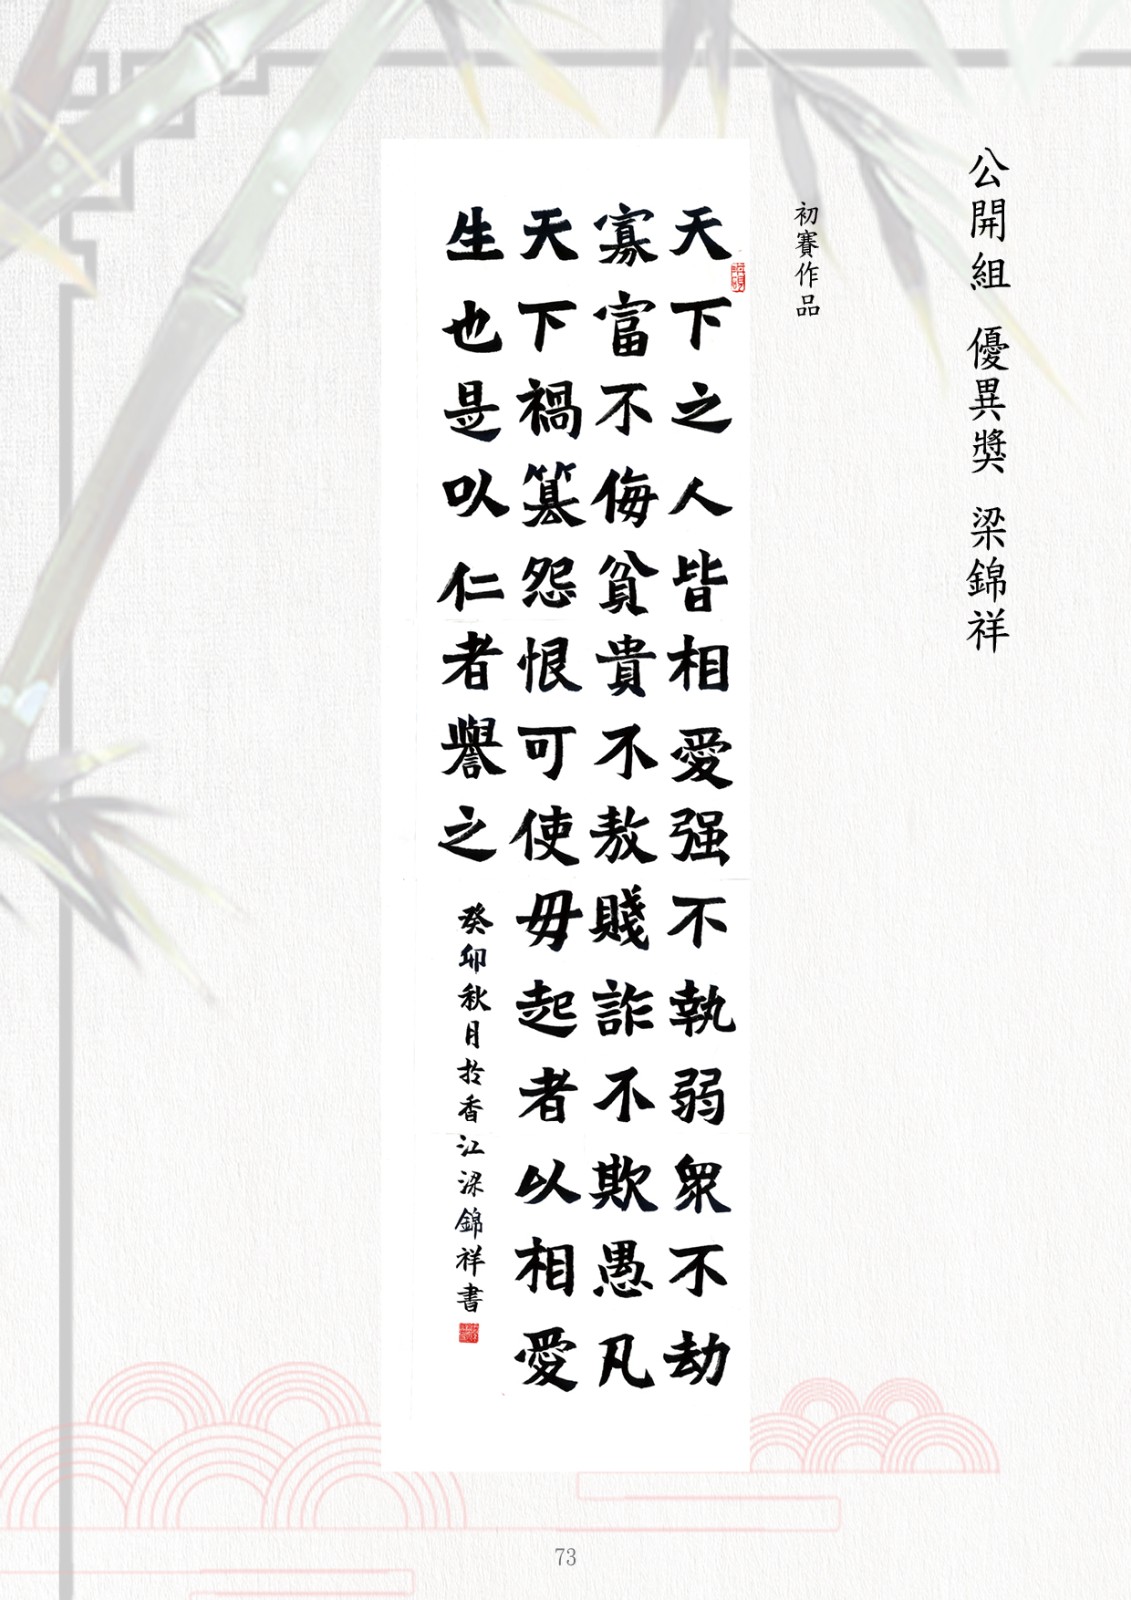 公開組 優異獎 梁錦祥
初賽作品
天下之人皆相愛强不執弱眾不劫
寡富不侮貧貴不敖賤詐不欺愚凡
天下禍篡怨恨可使毋起者以相愛
生也是以仁者譽之
癸卯秋月於香江梁錦祥書
73